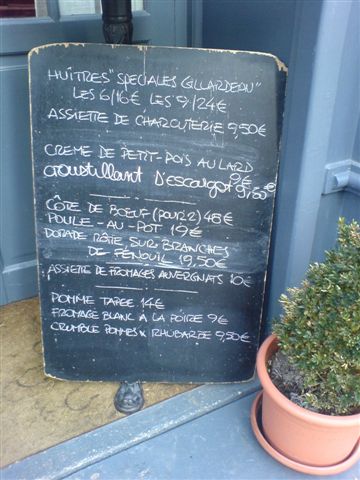 HUÎTRES "SPECIALES GILLARDEAU"
LES 6/16€ LES 9/24€
ASSIETTE DE CHARCUTERIE 9,50€
CREME DE PETIT-POIS AU LARD
9€
CROUSTILLANT D'ESCARGOT 9,50€
CÔTE DE BOEUF (POUR 2) 48€
POULE-AU-POT 19€
DORADE RÔTIE SUR BRANCHES
DE FENOUIL 19,50€
ASSIETTE DE FROMAGES AUVERGNATS 10€
POMME TAPEE 14€
FROMAGE BLANC À LA POIRE 9€
CRUMBLE POMMES X RHUBARBE 9,50€